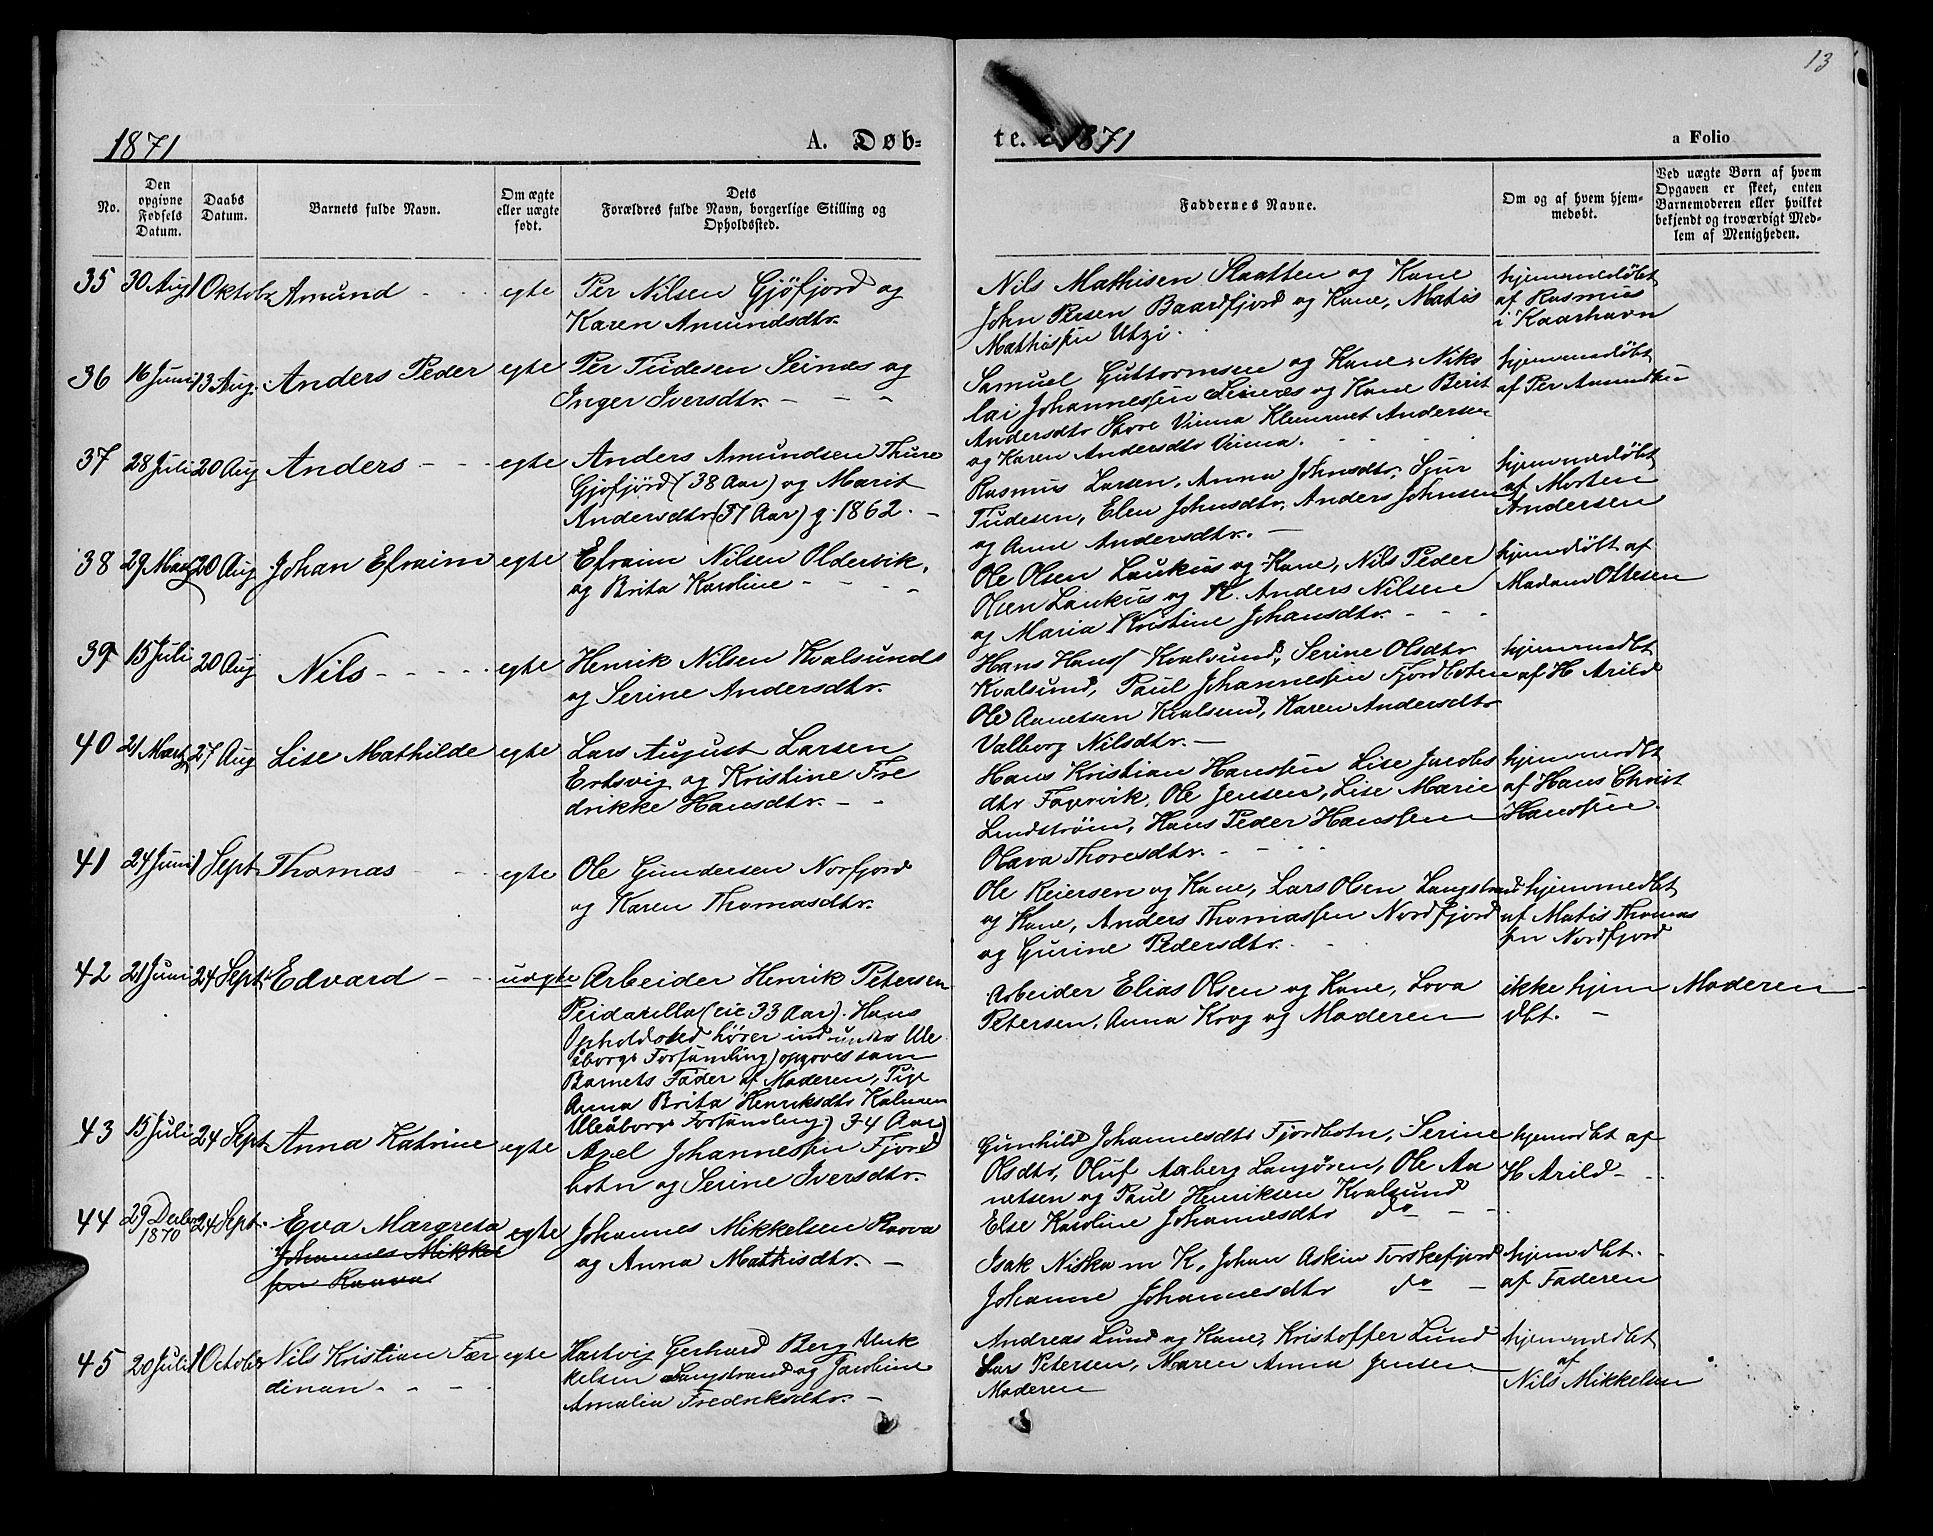 13
1871
A. Døb-
te. 1871
a Folio
No.
Den opgivne Fødsels Datum.
Daabs Datum.
Barnets fulde Navn.
Om ægte eller uægte født.
Dets Forældres fulde Navn, borgerlige Stilling og Opholdssted.
Faddernes Navne.
Om og af hvem hjemmedøbt.
Ved uægte Børn af hvem Opgaven er skeet, enten Barnemoderen eller hvilket bekjendt og troværdigt Medlem af Menigheden.
35 30 Aug 1 Oktobr Amund - - egte Per Nilsen Gjøfjord og
Karen Amundsdtr.
Nils Mathisen Slaatten og Kone
John Persen Baardfjord og Kone, Matis
Mathissen Utzi.
hjemmedøbt
af Rasmus
i Kaarhavn
36 16 Juni 13 Aug. Anders Peder egte Per Tudesen Seines og
Inger Iversdtr. - - -
Samuel Guttormsen og Kone, Niko
lai Johannessen Seines og Kone Berit
Andersdtr Store Vinna Klemmet Andersen
og Karen Andersdtr Vinna.
hjemmedøbt
af Per Amundsen
37 28 Juli 20 Aug Anders - - - egte Anders Amundsen Thure
Gjøfjord (38 Aar) og Marit
Andersdtr (37 Aar) g. 1862. -
Rasmus Larsen, Anna Johnsdtr, Sjur
Tudesen, Elen Johnsdtr, Anders Johnsen
og Anne Andersdtr. -
hjemmedøbt
af Morten
Andersen
38 29 Marz 20 Aug Johan Efraim egte Efraim Nilsen Oldervik,
og Brita Karoline - - -
Ole Olsen Laukus og Kone, Nils Peder
Olsen Laukus og K. Anders Nilsen
og Maria Kristine Johansdtr. - - -
hjemdøbt af
Madam Ottesen
39 15 Juli 20 Aug Nils - - - - egte Henrik Nilsen Kvalsund
og Serine Andersdtr.
Hans Hans Kvalsund, Serine Olsdtr
Kvalsund, Paul Johannessen Fjordboten
Ole Aanetsen Kvalsund, Karen Andersdtr
Valborg Nilsdtr. -
hjemmedbt
af H Arild
40 21 Martz 27 Aug Lise Mathilde egte Lars August Larsen
Ertsvig og Kristine Fre
drikke Hansdtr. - -
Hans Kristian Hanssen Lise Jacobs
dtr Fagervik, Ole Jensen, Lise Marie
Lindstrøm, Hans Peder Hanssen
Olava Thoresdtr. - - - -
hjemmedbt
af Hans Christ
Hanssen.
41 24 Juni 1 Sept. Thomas - - egte Ole Gundersen Norfjord
og Karen Thomasdtr.
Ole Reiersen og Kone, Lars Olsen Langstrand
og Kone, Anders Thomassen Nordfjord
og Gurine Pedersdtr.
hjemmedbt
af Matis Thomas
sen Nordfjord
42 21 Juni 24 Sept. Edvard - - uægte Arbeider Henrik Petersen
Peidarilla (cic 33 Aar). Hans
Opholdssted hører ind under Ule
åborgs Forsamling) opgoves som
Barnets Fader af Moderen, Pige
Anna Brita Henriksdtr Kalunen
Uleåborgs Forsamling) 34 Aar)
Arbeider Elias Olsen og Kone, Lova
Petersen, Anna Krog og Moderen
ikke hjem
dbt. -
Moderen -
43 15 Juli 24 Sept. Anna Katrine egte Axel Johannessen Fjord
botn og Serine Iversdtr.
Gunhild Johannesdtr Fjordbotn, Serine
Olsdtr, Oluf Aaberg Langøren, Ole Aa
netsen og Paul Henriksen Kvalsund
hjemdbt af
H Arild - -
44 29 Decbr 1870 24 Sept. Eva Margreta egte Johannes Mikkelsen Raava
Johannes Mikkel
sen Raava
og Anna Mathisdtr. -
Else Karoline Johannesdtr do - -
Isak Niska m K, Johan Askin Torskefjord
Johanne Johannesdtr do -
hjemdbt. -
af Faderen
45 20 Juli 1 October Nils Kristian Fær
dinan - - - egte Hartvig Gerhard Berg Mik
kelsen Langstrand og Jacobine
Amalia Fredriksdtr. -
Andreas Lund og Kone, Kristoffer Lund
Lars Petersen, Maren Anna Jensen
Moderen
hjemmedbt
af
Nils Mikkelsen